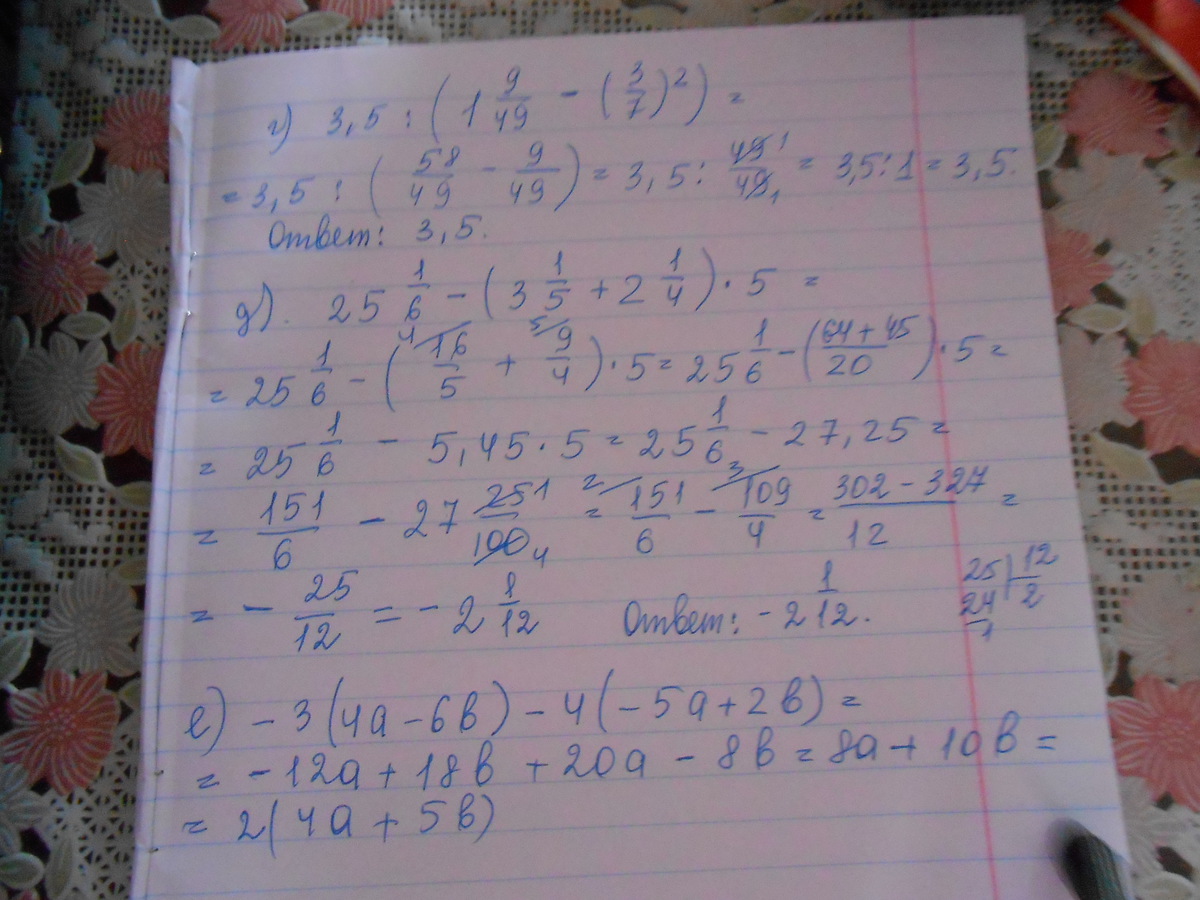 г) 3,5 : (1 9/49 - (3/7)²) =
= 3,5 : (58/49 - 9/49) = 3,5 : 49/49 1 1 = 3,5 : 1 = 3,5.
Ответ: 3,5.
д). 25 1/6 - (3 1/5 + 2 1/4) · 5 =
= 25 1/6 - (4 16/5 + 5 9/4) · 5 = 25 1/6 - (64 + 45/20) · 5 =
= 25 1/6 - 5,45 · 5 = 25 1/6 - 27,25 =
= 151/6 - 27 25/100 1 4 = 2 151/6 - 3 109/4 = 302 - 327/12 =
= - 25/12 = - 2 1/12 Ответ: - 2 1/12. 25 | 12
24 2
1
е) - 3(4а - 6в) - 4(- 5а + 2в) =
= - 12а + 18в + 20а - 8в = 8а + 10в =
= 2(4а + 5в)